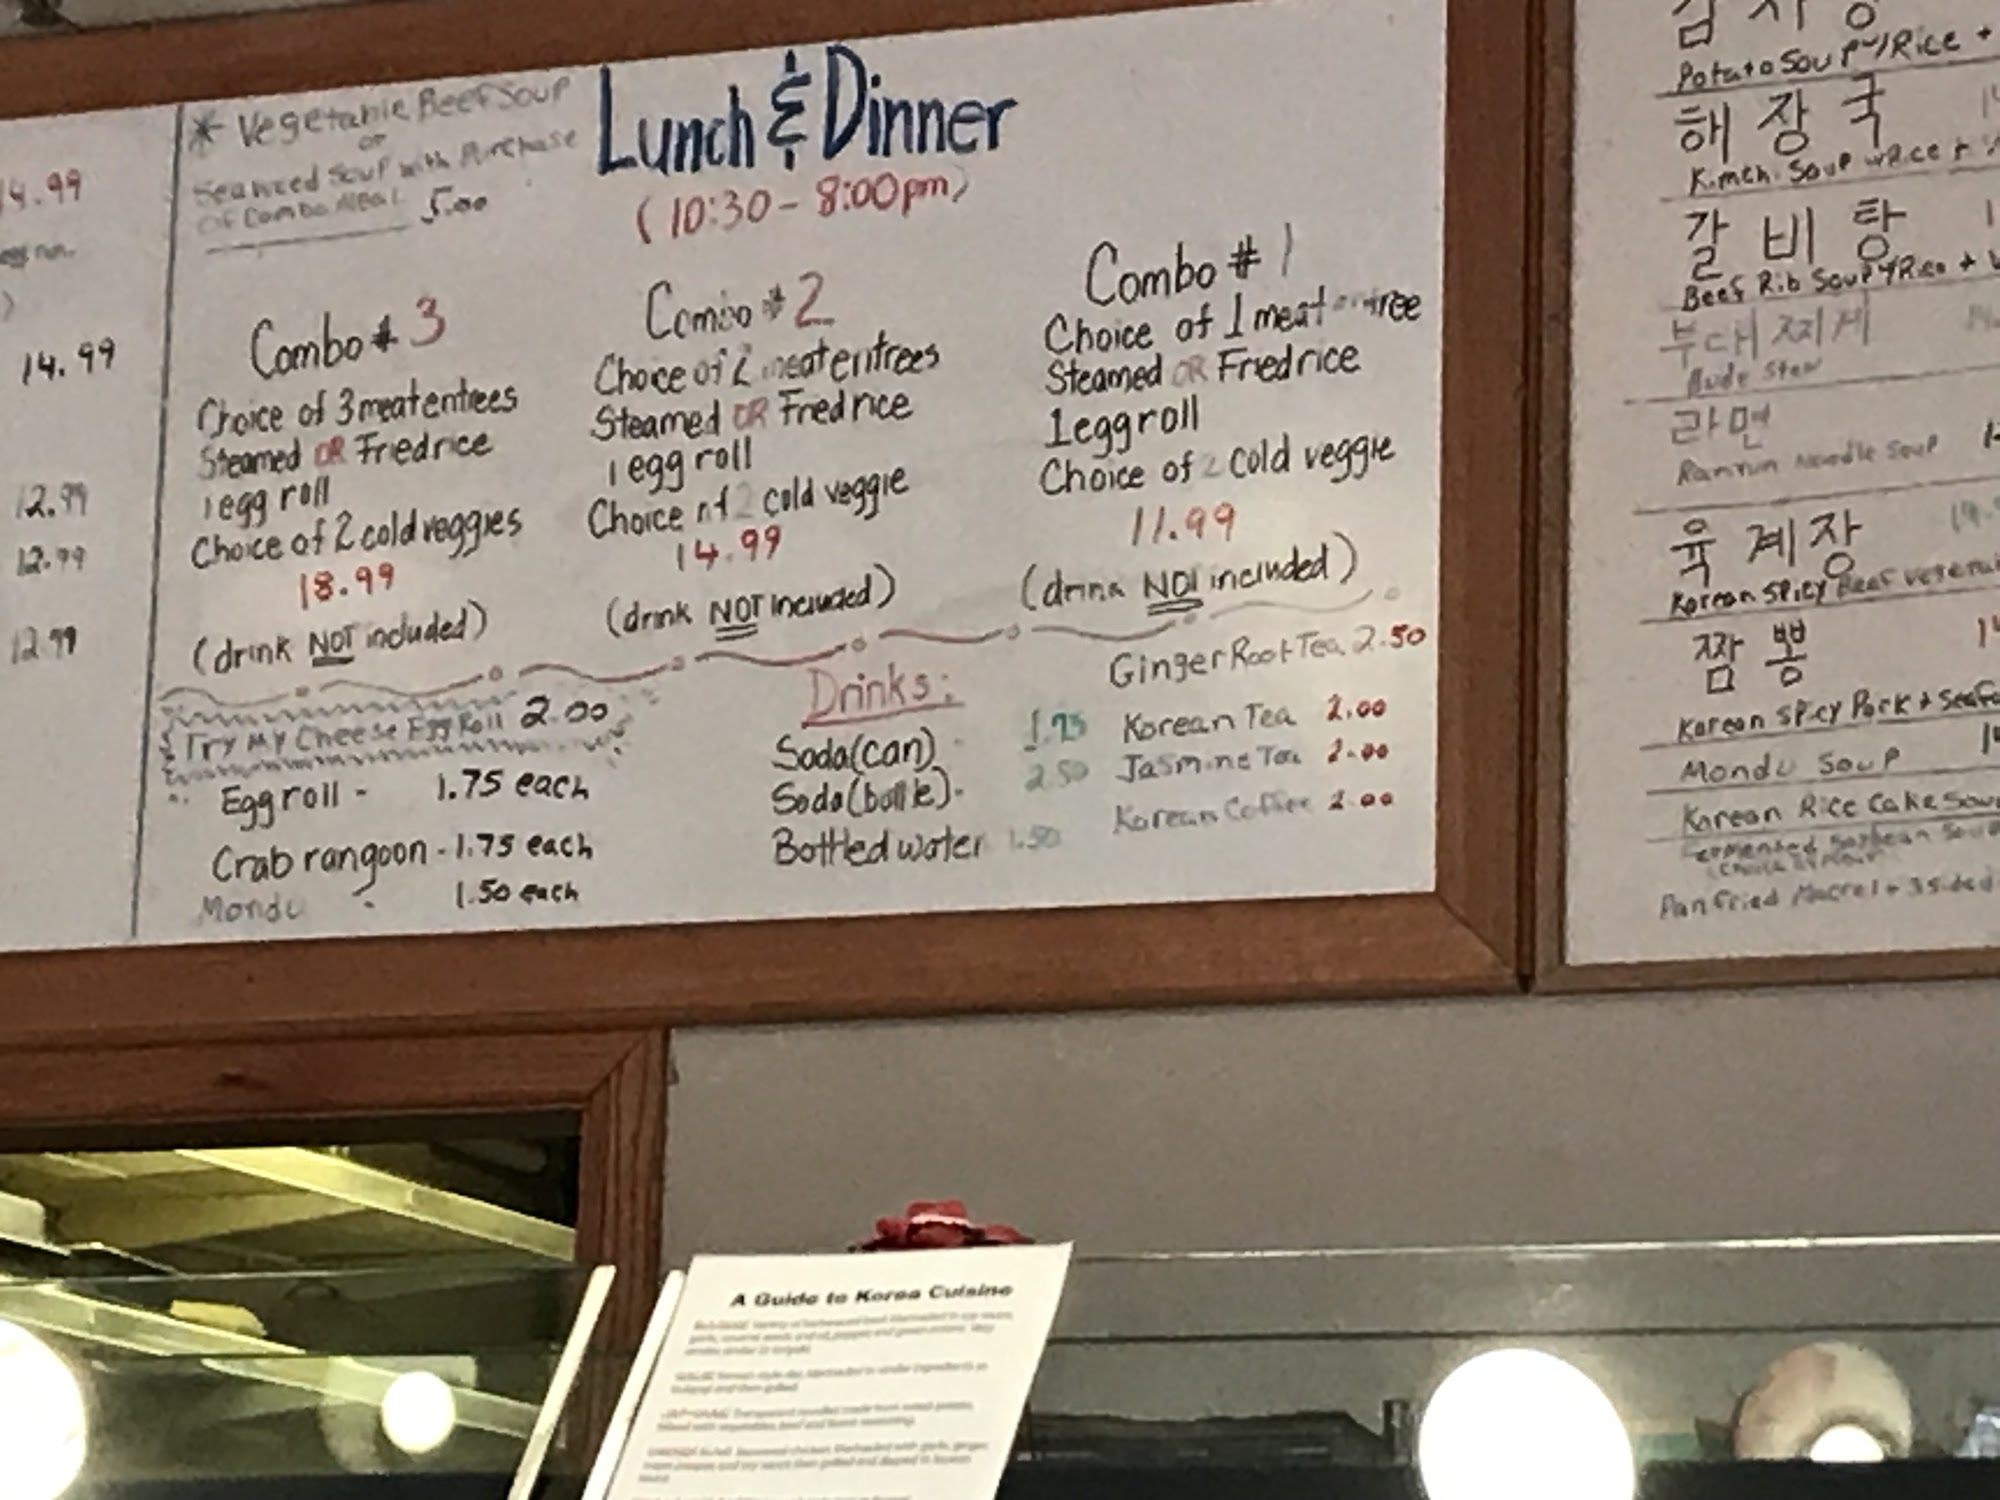 14.99
14.99
12.99
12.99
12.99
* Vegetable Beef Soup
or
Seaweed Soup with Purchase
Of Combo Meal 5.00
Lunch & Dinner
(10:30 - 8:00pm)
Combo # 3
Choice of 3 meat entrees
Steamed OR Fried rice
1 egg roll
Choice of 2 cold veggies
18.99
(drink NOT included)
Combo # 2
Choice of 2 meat entrees
Steamed OR Fried rice
1 egg roll
Choice of 2 cold veggie
14.99
(drink NOT included)
Combo # 1
Choice of 1 meat entree
Steamed OR Fried rice
1 egg roll
Choice of 2 cold veggie
11.99
(drink NOT included)
Try My Cheese Egg Roll 2.00
Egg roll - 1.75 each
Crab rangoon - 1.75 each
Mondu - 1.50 each
Drinks:
Soda (can) - 1.75
Soda (bottle) - 2.50
Bottled water 1.50
Ginger Root Tea 2.50
Korean Tea 2.00
Jasmine Tea 2.00
Korean Coffee 2.00
감자탕
Potato Soup w/Rice +
해장국
Kimchi Soup w/Rice +
갈비탕
Beef Rib Soup w/Rice +
부대찌게
Bude Stew
라면
Ramun Noodle Soup
육계장
Korean Spicy Beef
짬뽕
Korean Spicy Pork +
Mondu Soup
Korean Rice Cake
Fermented Soybean
Pan Fried Macrel + 3
A Guide to Korea Cuisine